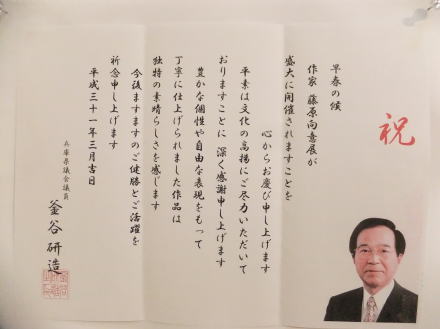 祝
早春の候
作家 藤原向意展が
盛大に開催されますことを
心からお慶び申し上げます
平素は文化の高揚にご尽力いただいて
おりますことに 深く感謝申し上げます
豊かな個性や自由な表現をもって
丁寧に仕上げられました作品は
独特の素晴らしさを感じます
今後ますますのご健勝とご活躍を
祈念申し上げます
平成三十一年三月吉日
兵庫県議会議員
釜谷研造